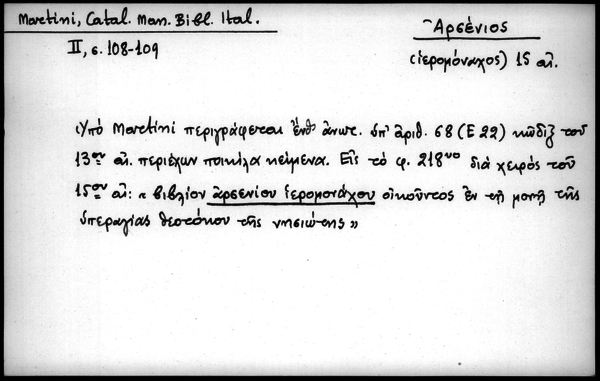 Martini, Catal. Man. Bibl. Ital.
II, σ. 108-109
Ἀρσένιος
(ἱερομόναχος) 15 αἰ.
Ὑπό Martini περιγράφεται ἔνθ' ἀνωτ. ὑπ' ἀριθ. 68 (E 22) κῶδιξ τοῦ
13ου αἰ. περιέχων ποικίλα κείμενα. Εἰς τό φ. 218νο διά χειρός τοῦ
15ου αἰ: « βιβλίον ἀρσενίου ἱερομονάχου οἰκοῦντος ἐν τῇ μονῇ τῆς
ὑπεραγίας θεοτόκου τῆς νησιώτης »